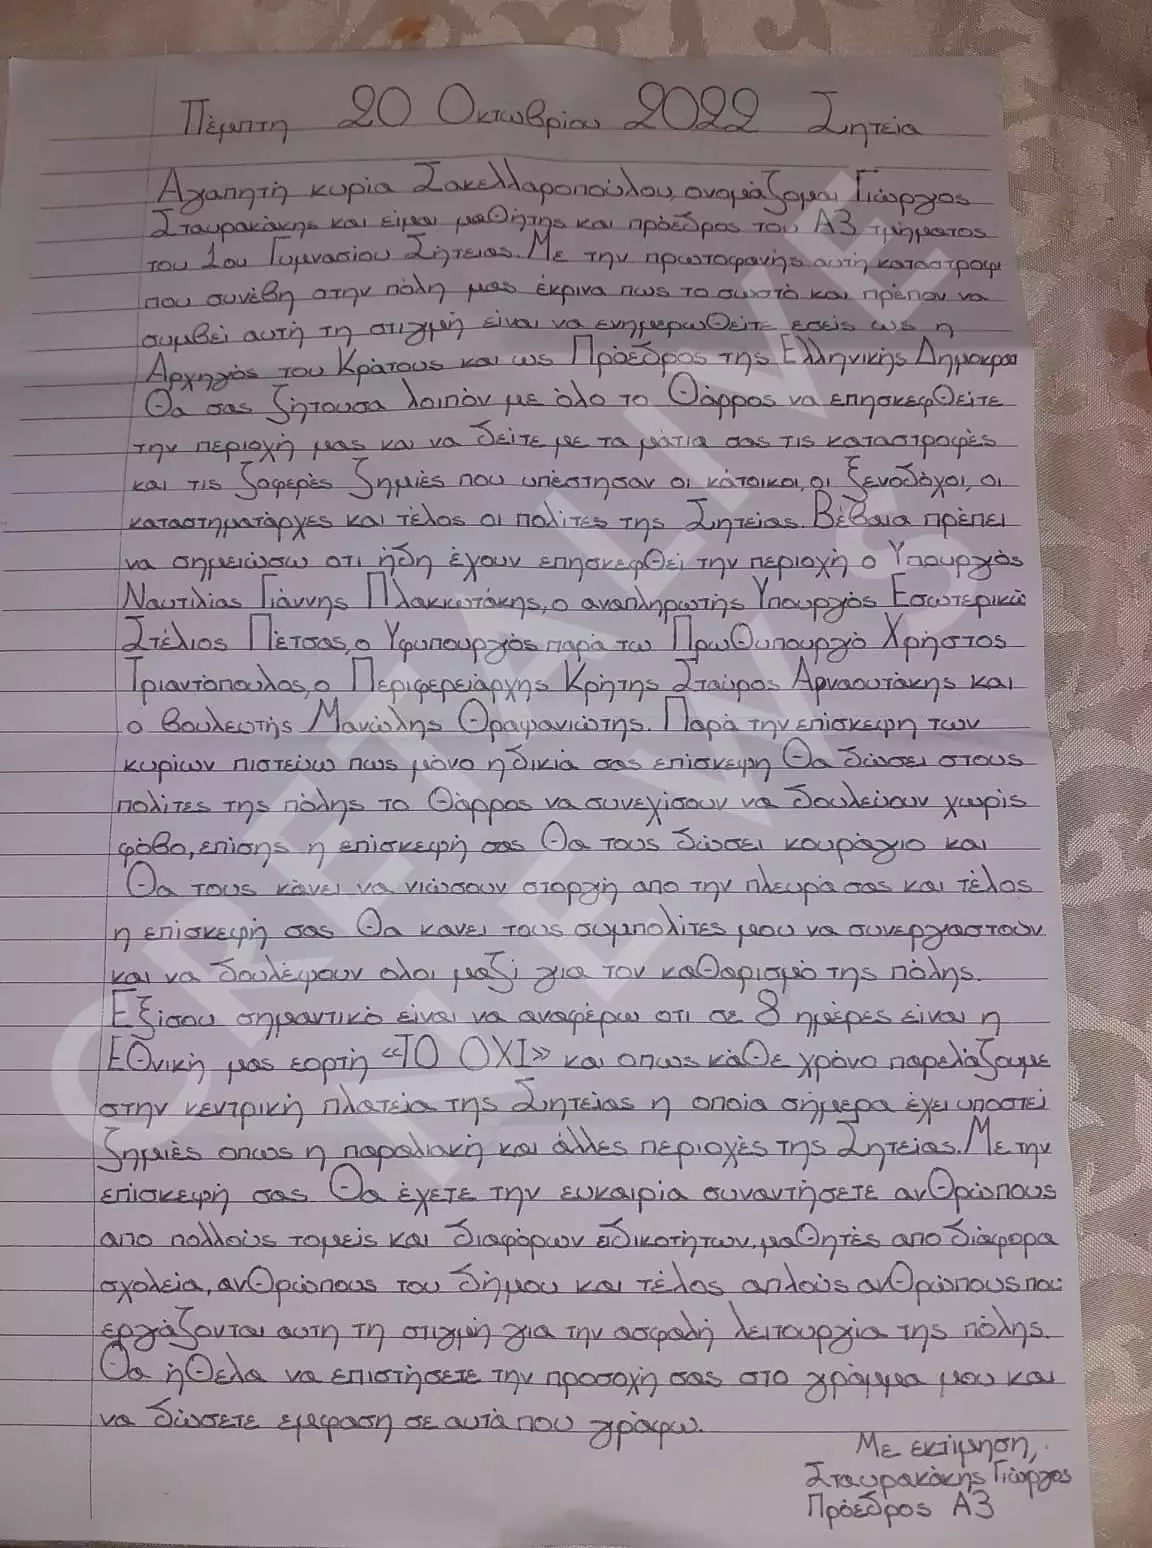 Πέμπτη 20 Οκτωβρίου 2022 Σητεία
Αγαπητή κυρία Σακελλαροπούλου, ονομάζομαι Γιώργος
Σταυρακάκης και είμαι μαθήτης και πρόεδρος του Α3 τμήματος
του 1ου Γυμνασίου Σητείας. Με την πρωτοφανής αυτή καταστροφή
που συνέβη στην πόλη μας έκρινα πως το σωστό και πρέπον να
συμβεί αυτή τη στιγμή είναι να ενημερωθείτε εσείς ως η
Αρχηγός του Κράτους και ως Πρόεδρος της Ελληνικής Δημοκρα
Θα σας ζήτουσα λοιπόν με όλο το Θάρρος να επησκεφθείτε
την περιοχή μας και να δείτε με τα μάτια σας τις καταστροφές
και τις ζοφερές ζημιές που υπέστησαν οι κάτοικοι, οι ξενοδόχοι, οι
καταστηματάρχες και τέλος οι πολίτες της Σητείας. Βέβαια πρέπει
να σημειώσω οτι ήδη έχουν επησκεφθεί την περιοχή ο Υπουργός
Ναυτιλίας Γιάννης Πλακιωτάκης, ο αναπληρωτής Υπουργός Εσωτερικώ
Στέλιος Πέτσας, ο Υφυπουργός παρά τω Πρωθυπουργό Χρήστος
Τριαντόπουλος, ο Περιφερειάρχης Κρήτης Σταύρος Αρναουτάκης και
ο βουλευτής Μανώλης Θραψανιώτης. Παρά την επίσκεψη των
κυρίων πιστεύω πως μόνο η δικιά σας επίσκεψη Θα δώσει στους
πολίτες της πόλης το Θάρρος να συνεχίσουν να δουλεύουν χωρίς
φόβο, επίσης η επίσκεψή σας Θα τους δώσει κουράγιο και
Θα τους κάνει να νιώσουν στοργή απο την πλευρά σας και τέλος
η επίσκεψή σας Θα κανει τους συμπολίτες μου να συνεργαστούν
και να δουλέψουν ολοι μαζί για τον καθαρισμό της πόλης.
Εξίσου σημαντικό είναι να αναφέρω οτι σε 8 ημέρες είναι η
Εθνική μας εορτή «ΤΟ ΟΧΙ» και οπως κάθε χρόνο παρελάζουμε
στην κεντρική πλατεία της Σητείας η οποία σήμερα έχει υποστεί
ζημιές οπως η παραλιακή και άλλες περιοχές της Σητείας. Με την
επίσκεψή σας Θα έχετε την ευκαιρία συναντήσετε ανθρώπους
απο πολλούς τομείς και διαφόρων ειδικοτήτων, μαθητές απο διάφορα
σχολεία, ανθρώπους του δήμου και τέλος απλούς ανθρώπους που
εργάζονται αυτη τη στιγμή για την ασφαλή λειτουργία της πόλης.
Θα ήθελα να επιστήσετε την προσοχή σας στο γράμμα μου και
να δώσετε εμφαση σε αυτά που γράφω.
Με εκτίμηση,
Σταυρακάκης Γιώργος
Πρόεδρος Α3
CRETALIVE
NEWS